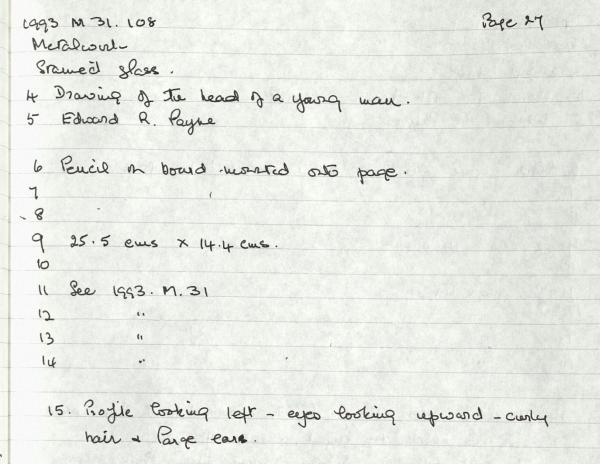 1993 M 31. 108 Page 27
Metalwork
Stained glass.
4 Drawing of the head of a young man.
5 Edward R. Payne
6 Pencil on board - mounted onto page.
7
8
9 25.5 cms x 14.4 cms.
10
11 See 1993. M. 31
12 "
13 "
14 "
15. Profile looking left - eyes looking upward - curly
hair & large ears.